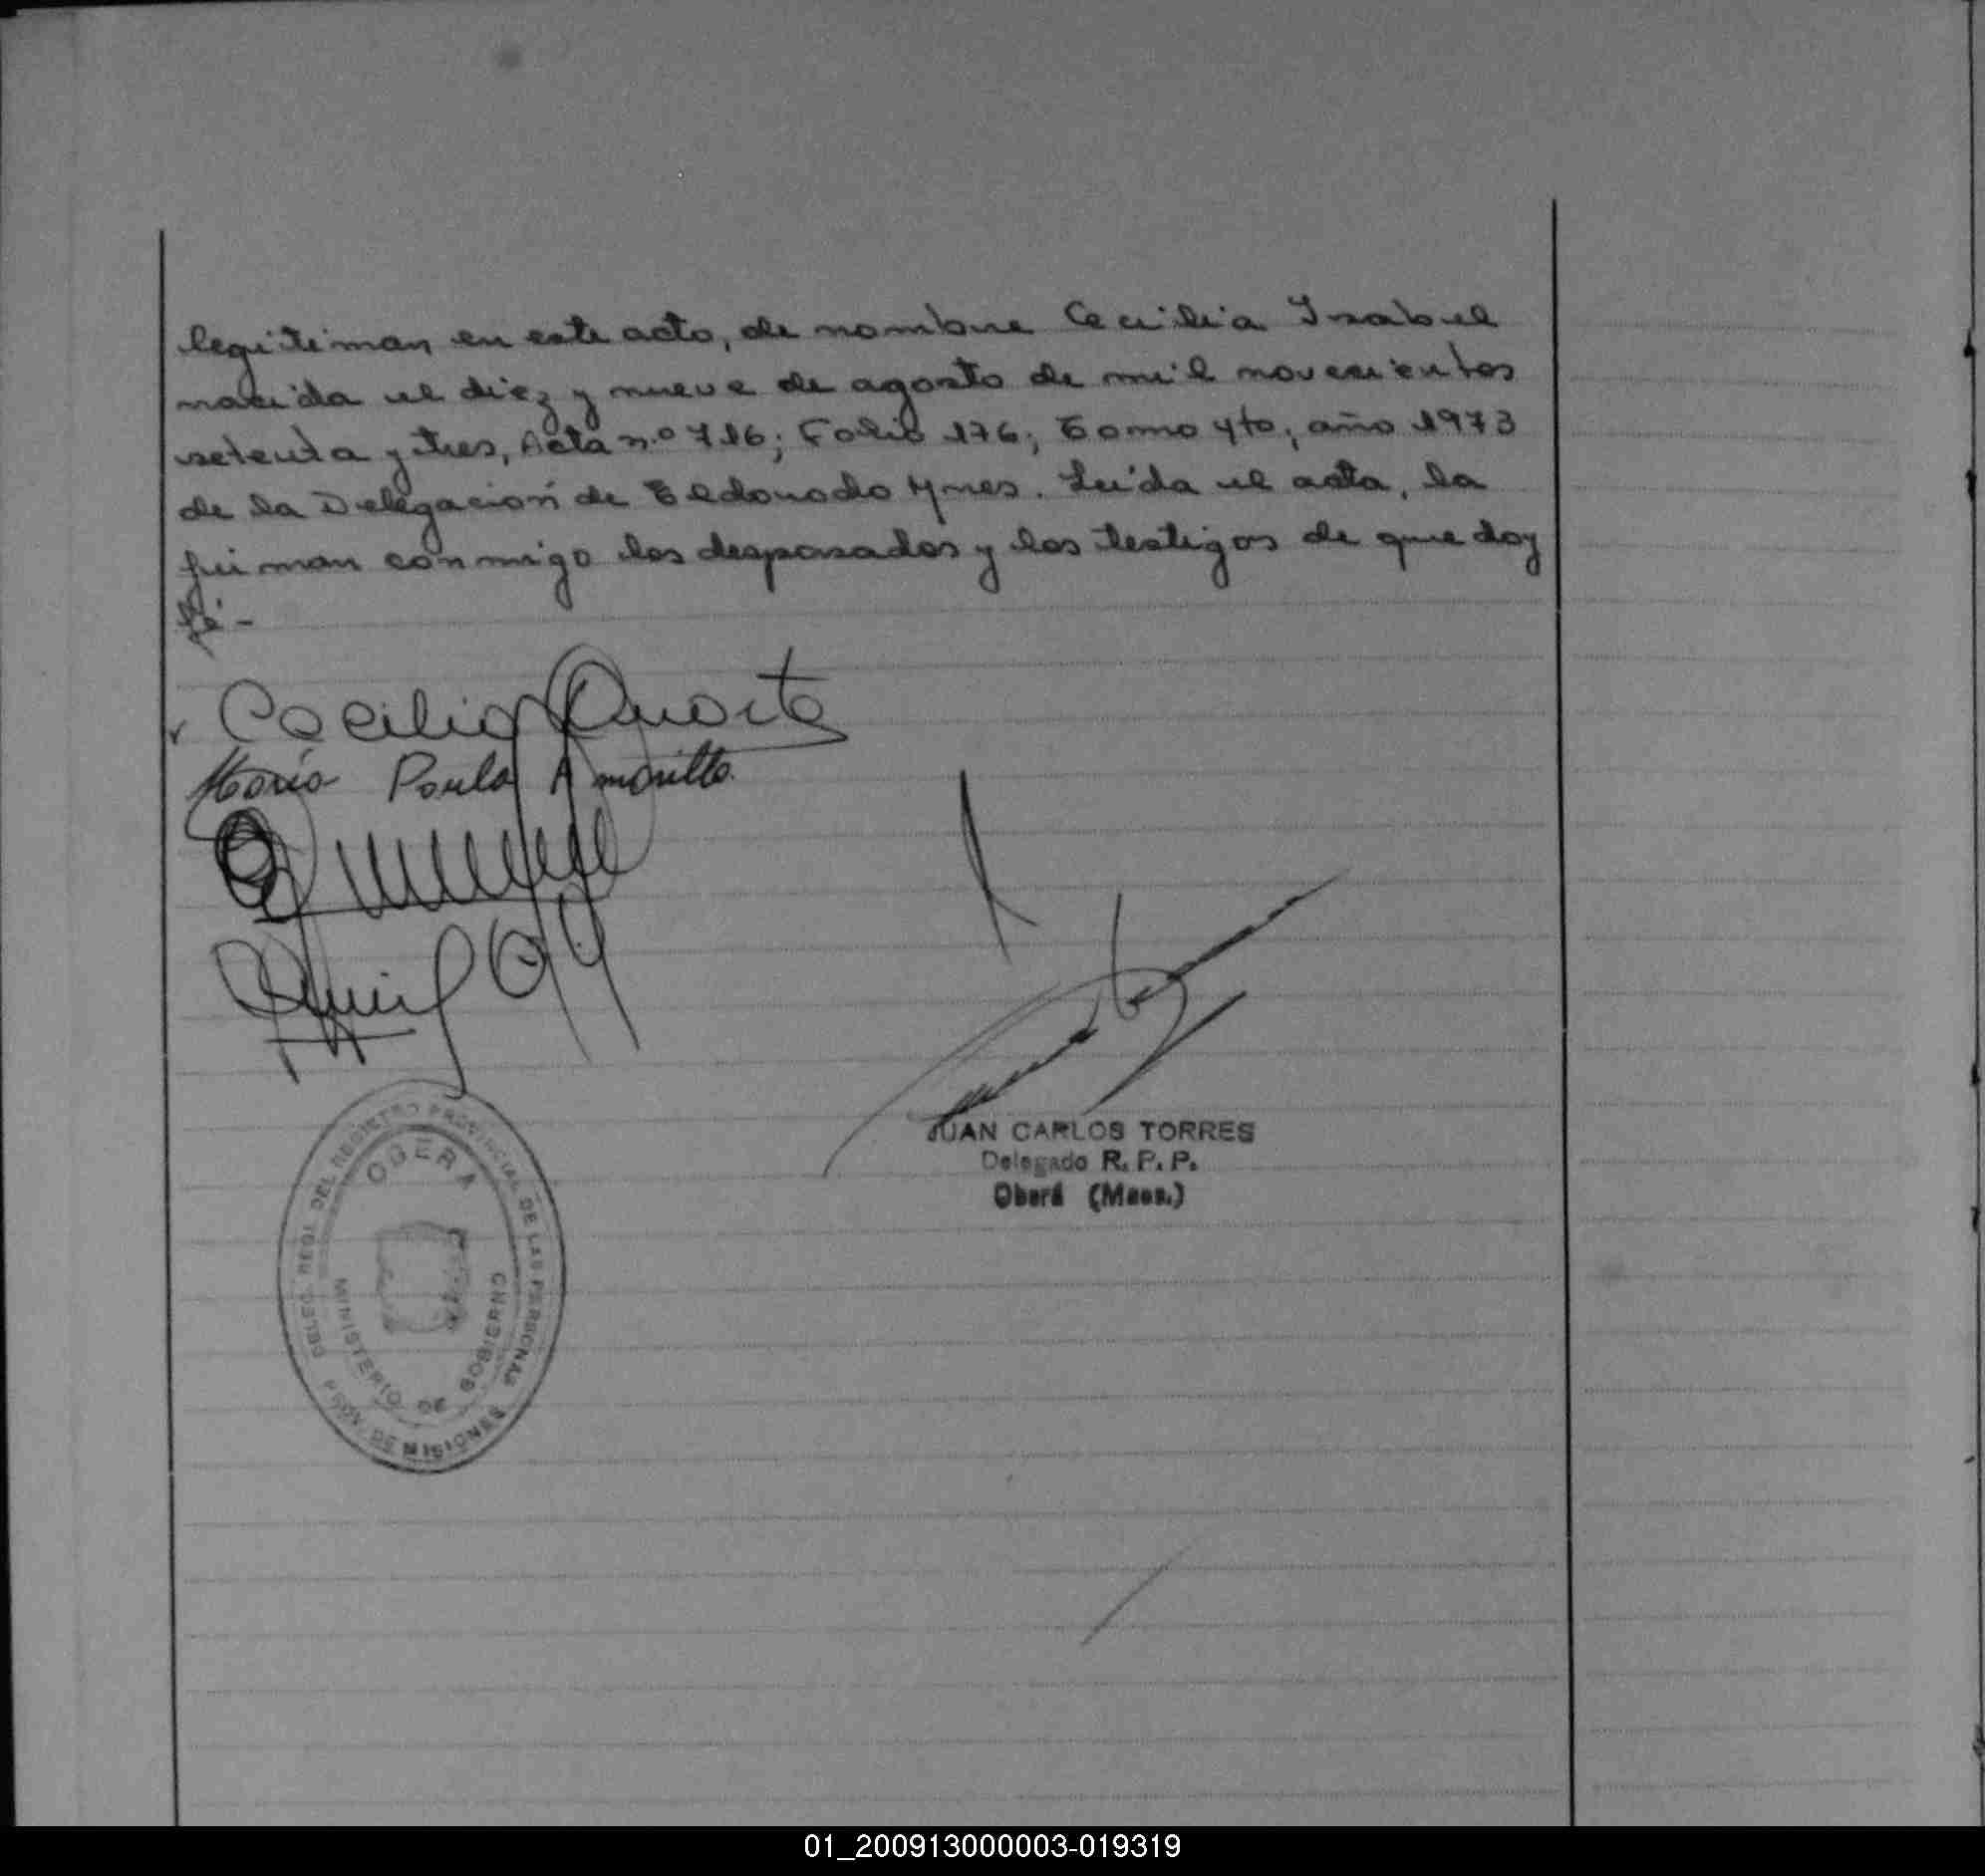 legitiman en este acto, de nombre Cecilia Ysabel
nacida el diez y nueve de agosto de mil novecientos
setenta y tres, Acta n.º 716; Folio 176; Tomo 4to, año 1973
de la Delegación de Eldorado Mnes. Leída el acta, la
firman conmigo los desposados y los testigos de que doy
fé -
Cecilio Duarte
María Paula Amarilla
JUAN CARLOS TORRES
Delegado R. P. P.
Oberá (Mnes.)
DELEG. REGI. DEL REGISTRO PROVINCIAL DE LAS PERSONAS
MINISTERIO DE GOBIERNO
DE MISIONES
01_200913000003-019319